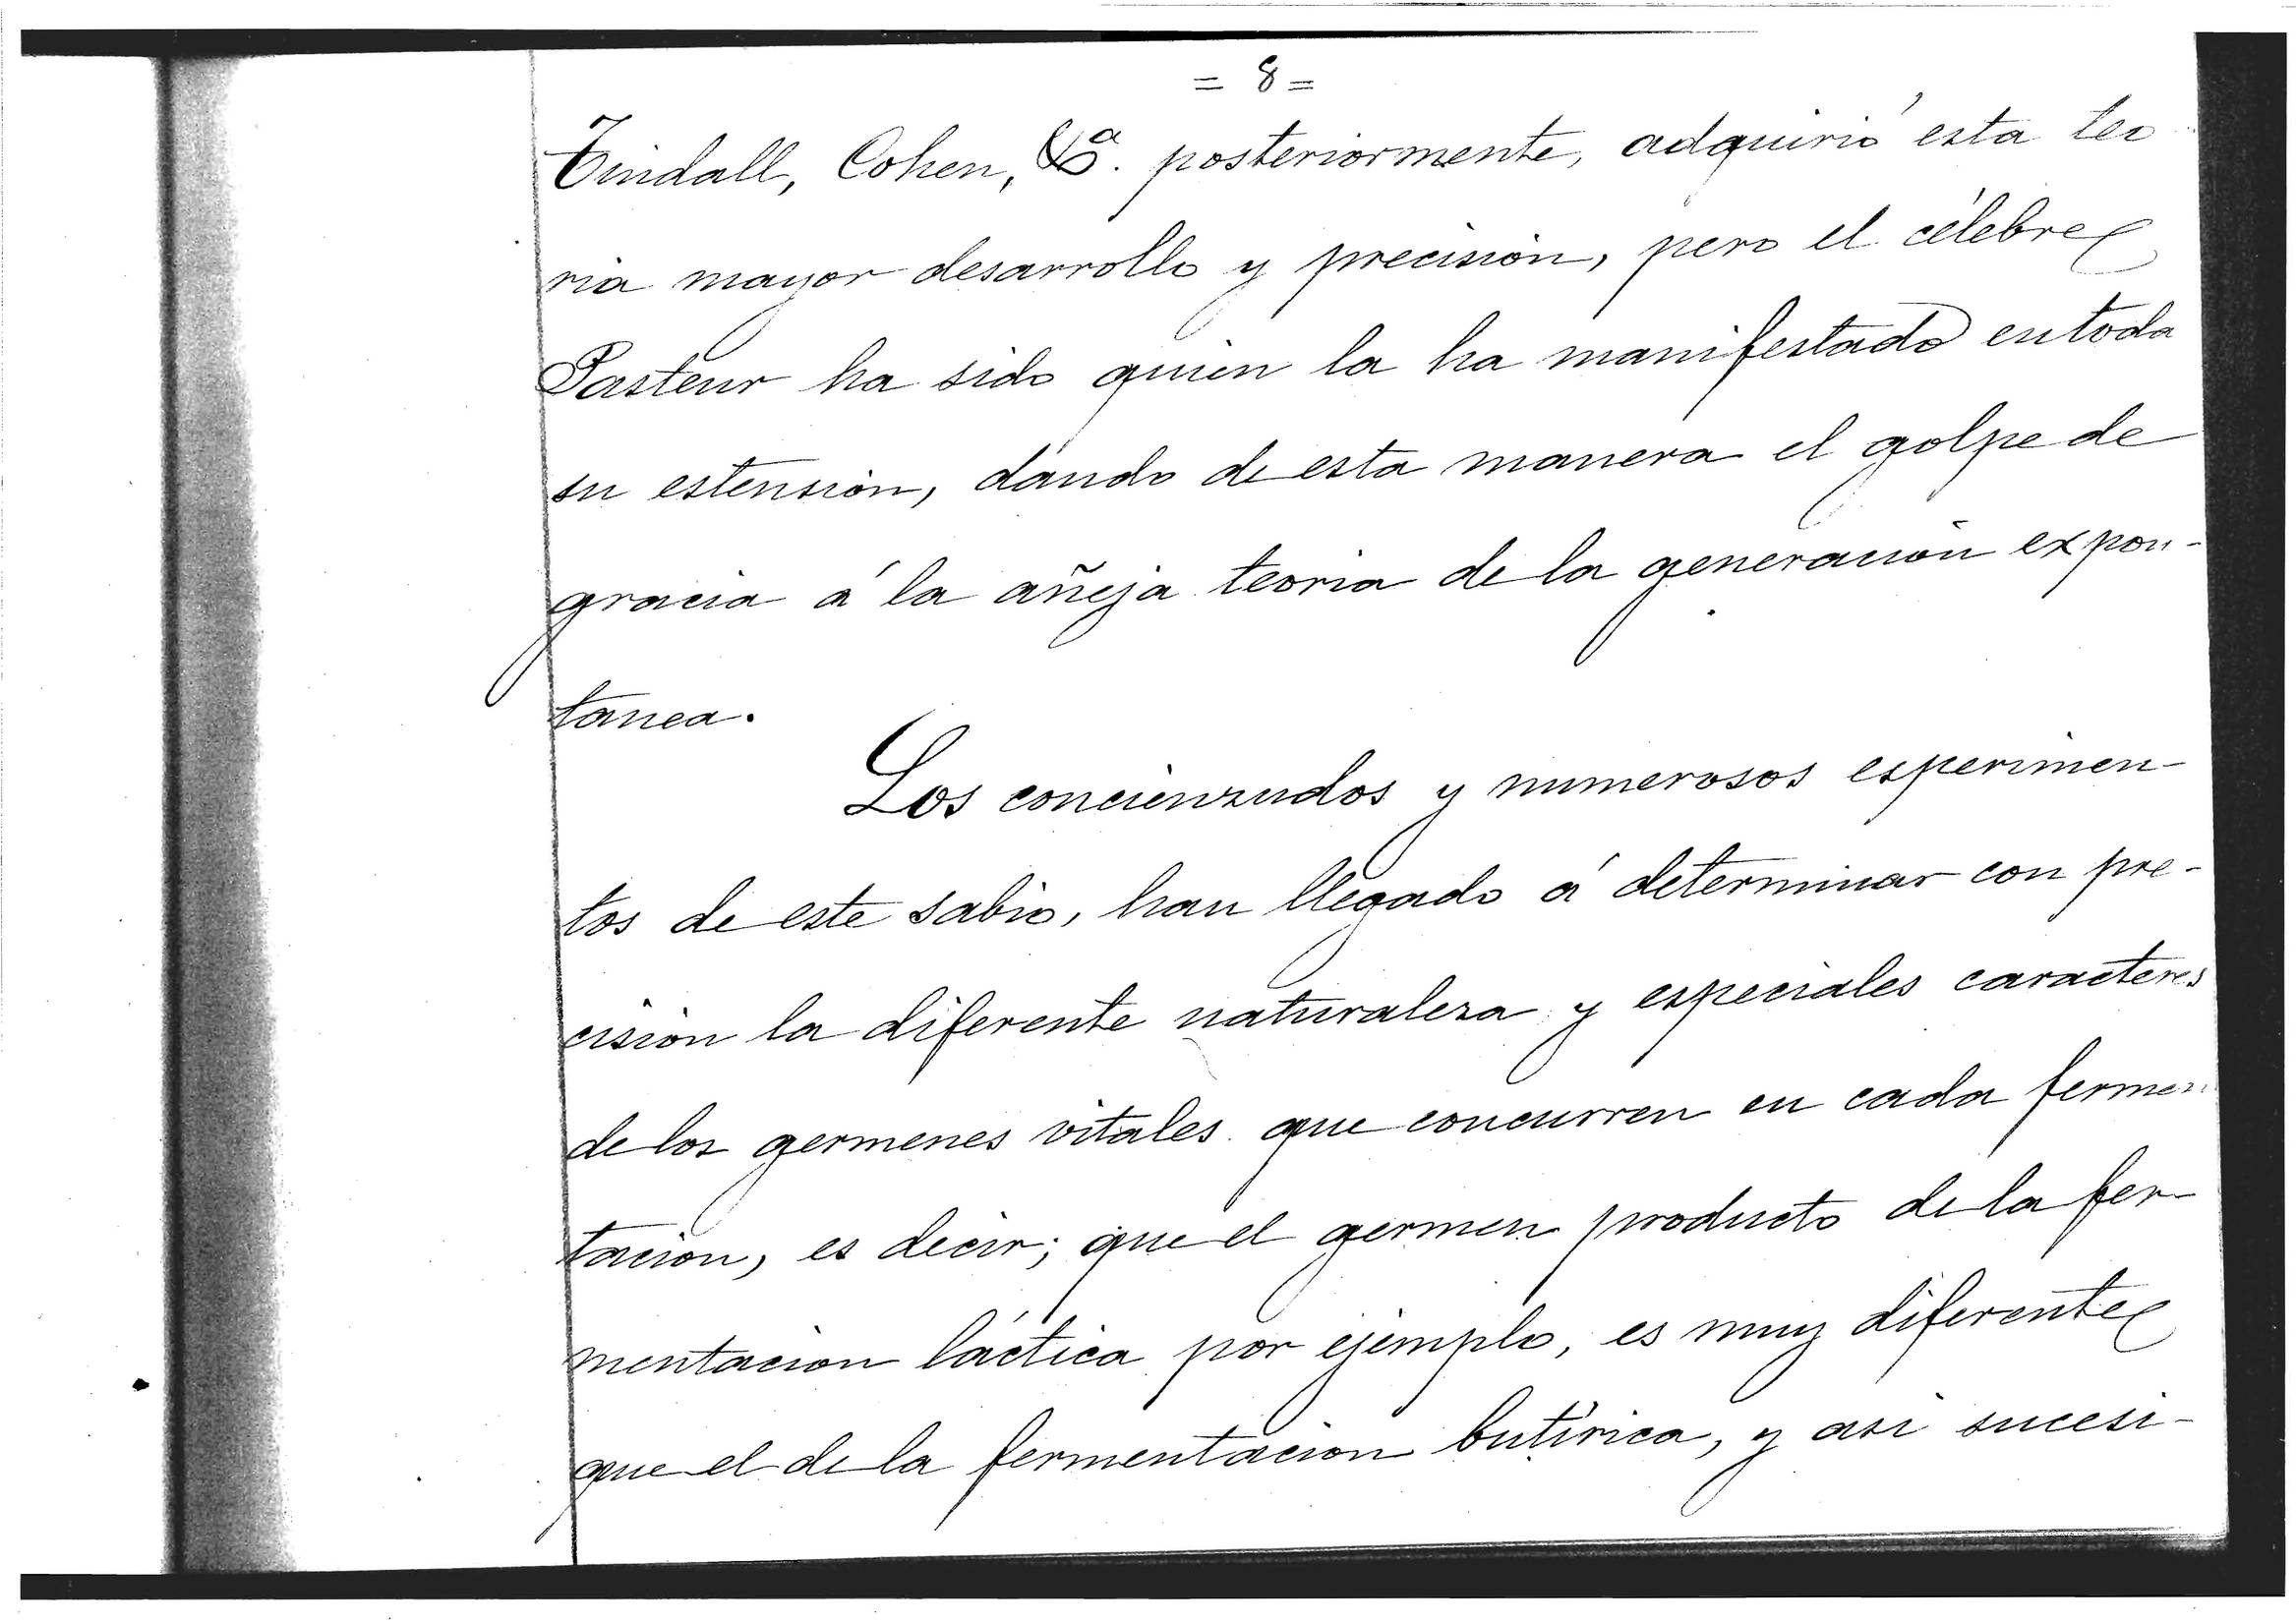 = 8 =
Tindall, Cohen, &ª. posteriormente, adquirió esta teo
ria mayor desarrollo y precisión, pero el célebre
Pasteur ha sido quién la ha manifestado en toda
su estensión, dando de esta manera el golpe de
gracia á la añeja teoria de la generación expon-
tanea.
Los concienzudos y numerosos esperimen-
tos de este sabio, han llegado á determinar con pre-
cisión la diferente naturaleza y especiales caracteres
de los germenes vitales que concurren en cada fermen
tacion, es decir; que el germen producto de la fer-
mentacion láctica por ejemplo, es muy diferente
que el de la fermentacion butírica, y asi sucesi-